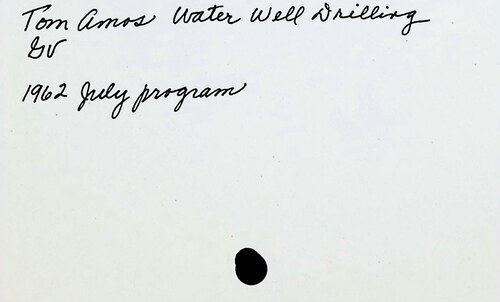 Tom Amos Water Well Drilling
GV
1962 July program